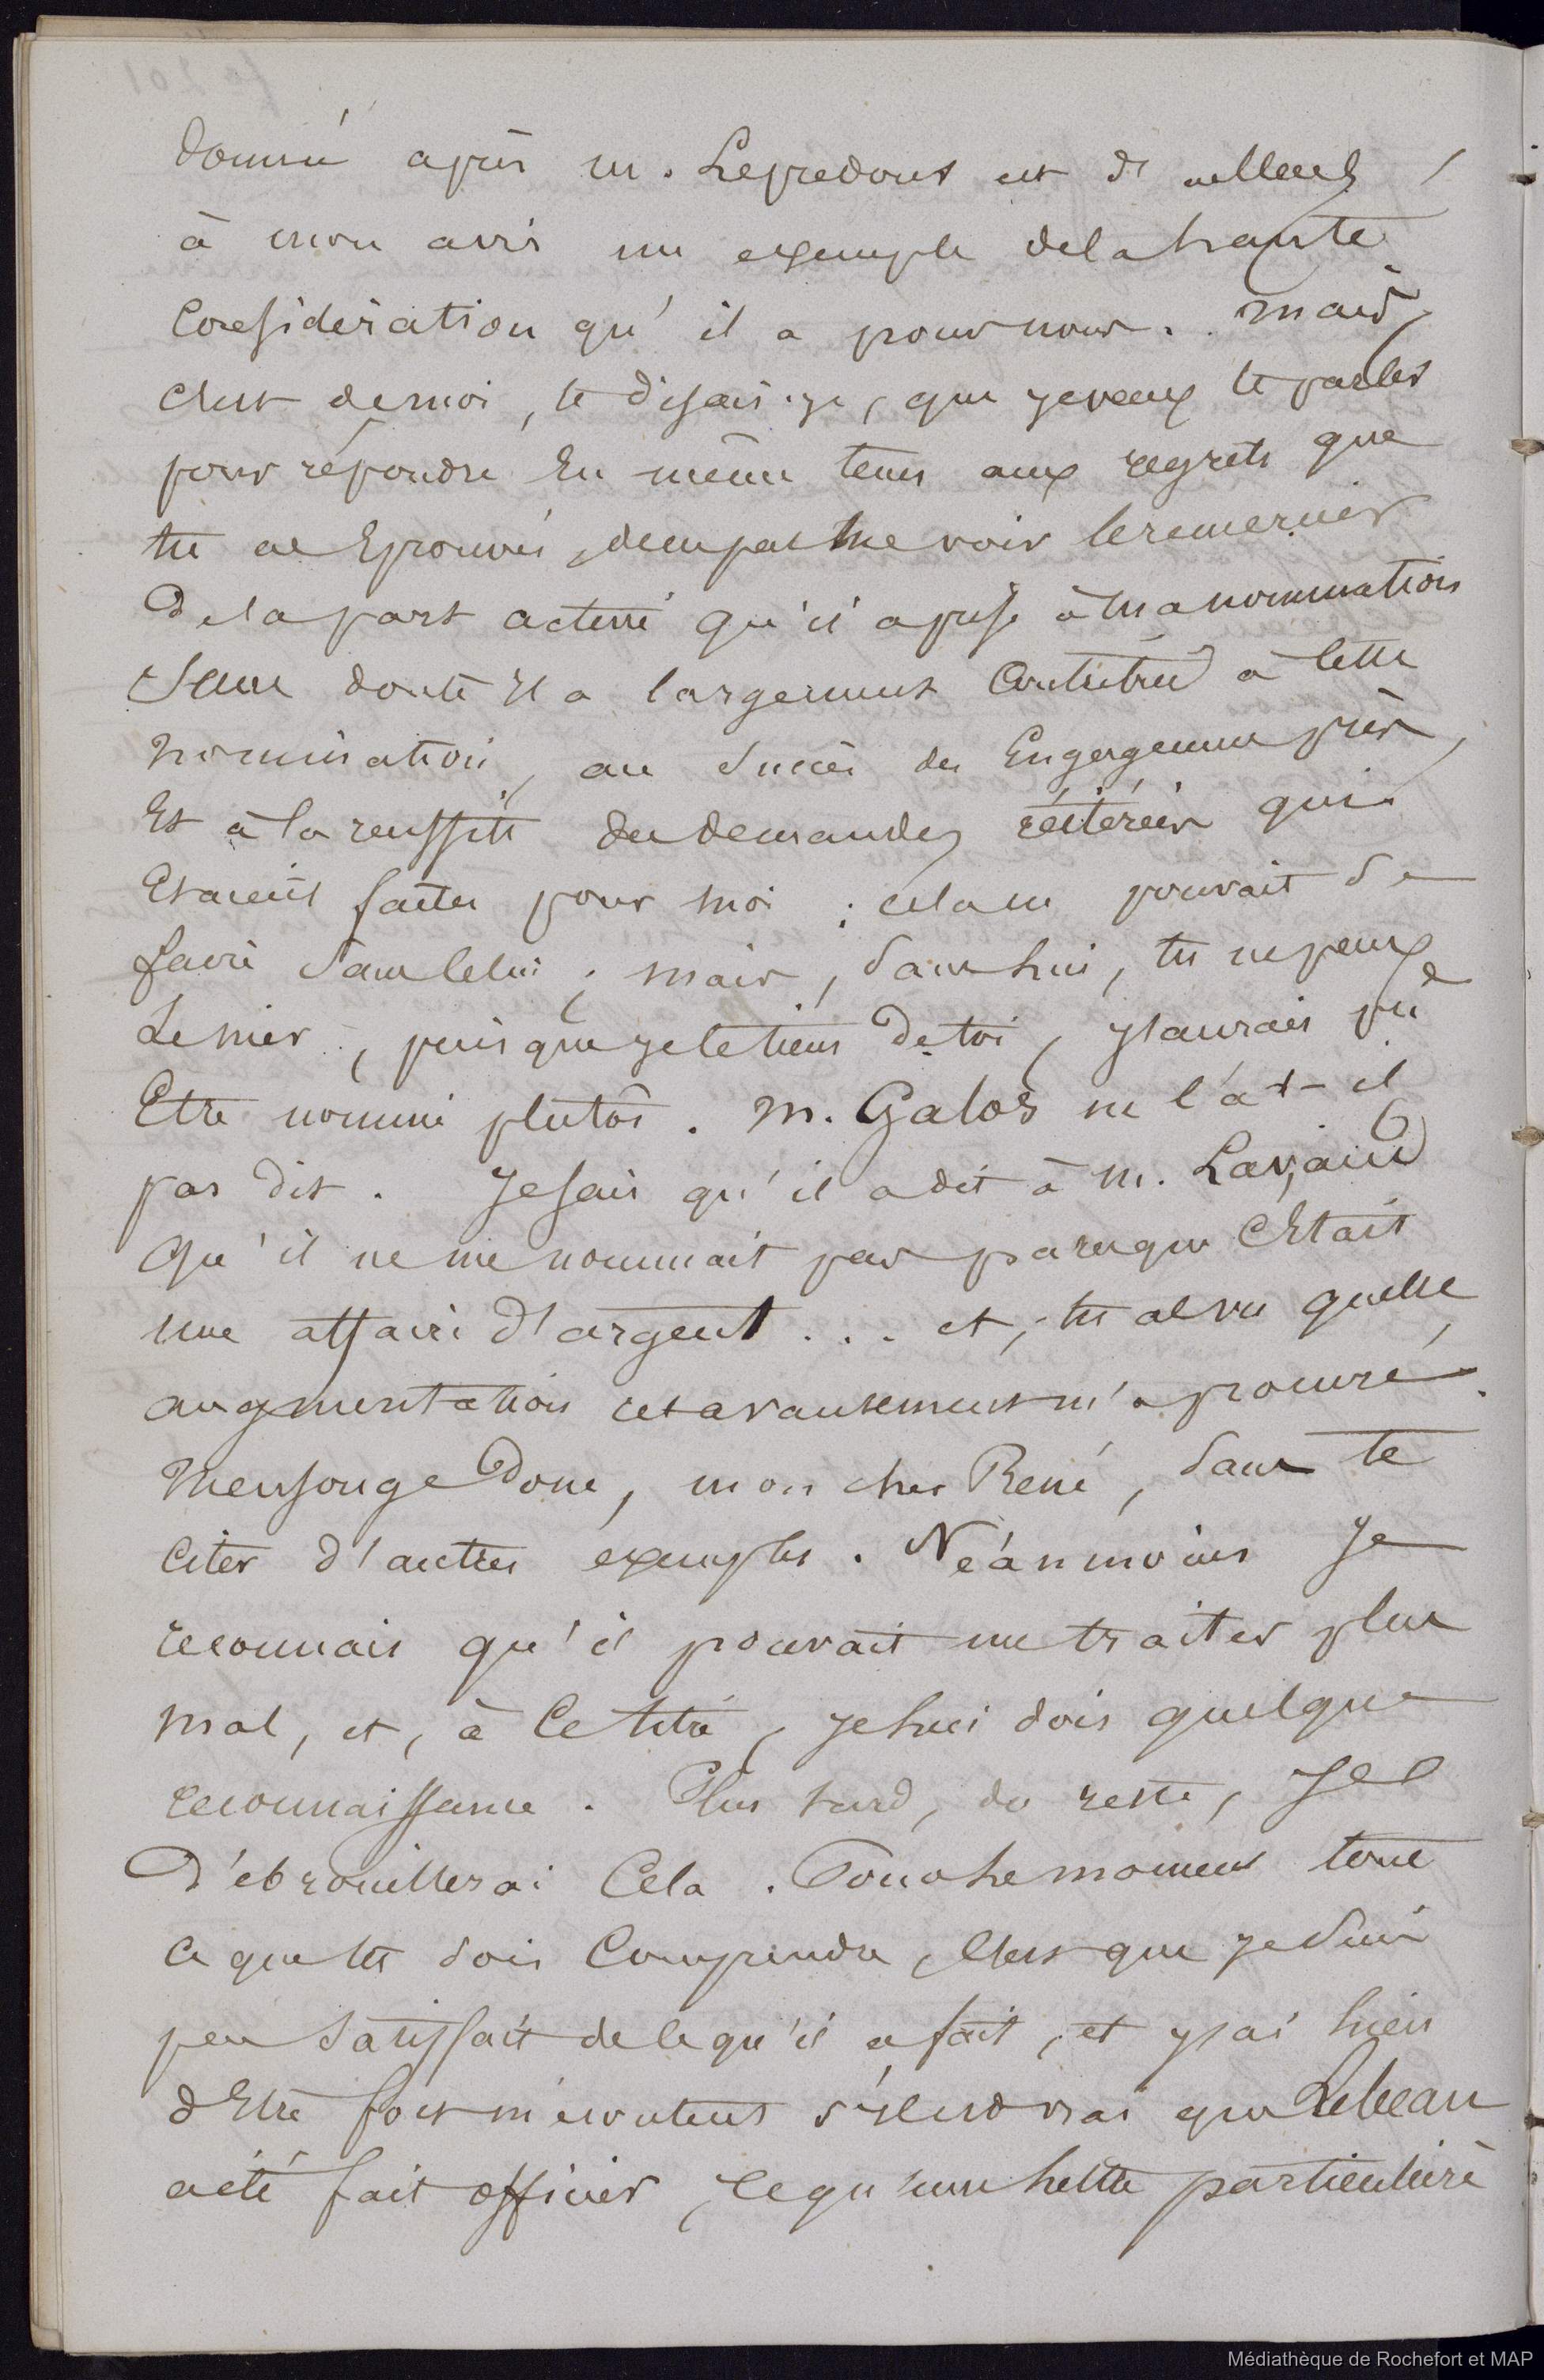 donné après m. Lepredout est d'ailleurs,
à mon avis un exemple de la haute
Considération qu'il a pour nous. Mais,
C'est de moi, te disais-je, que je veux te parler
pour répondre En même tems aux regrets que
tu as Eprouvés, de ne pas me voir le remercier
De la part active qu'il a prise à ma nomination
Sans doute Il a largement Contribué à cette
nomination, au Succès des Engagemens pris,
Et à la reussite des demandes réitérées qui
Etaient faites pour moi ; cela ne pouvait Se
faire Sans lui ; mais, Sans lui, tu ne peux
Le nier, puisque je le tiens De toi, J'aurais pu
Etre nommé plutôt. M. Galos ne l'a-t-il
pas dit. Je Sais qu'il a dit à M. Lavaud
Qu'il ne me nommait pas parceque C'Etait
une affaire d'argent ... et, tu as vu quelle
augmentation cet avancement m'a procuré.
Mensonge Donc, mon cher René, Sans te
Citer d'autres exemples. Néanmoins Je
reconnais qu'il pouvait me traiter plus
mal, et, à Ce titre, Je lui dois quelque
reconnaissance. Plus tard, du reste, Je
D'ebrouillerai Cela. Pour le moment tout
Ce que tu dois Comprendre, C'est que je Suis
peu Satisfait de Ce qu'il a fait, et J'ai lieu
d'Etre fort mécontent s'il est vrai que Lebeau
a été fait officier, Ce qu'une lettre particulière
Médiathèque de Rochefort et MAP